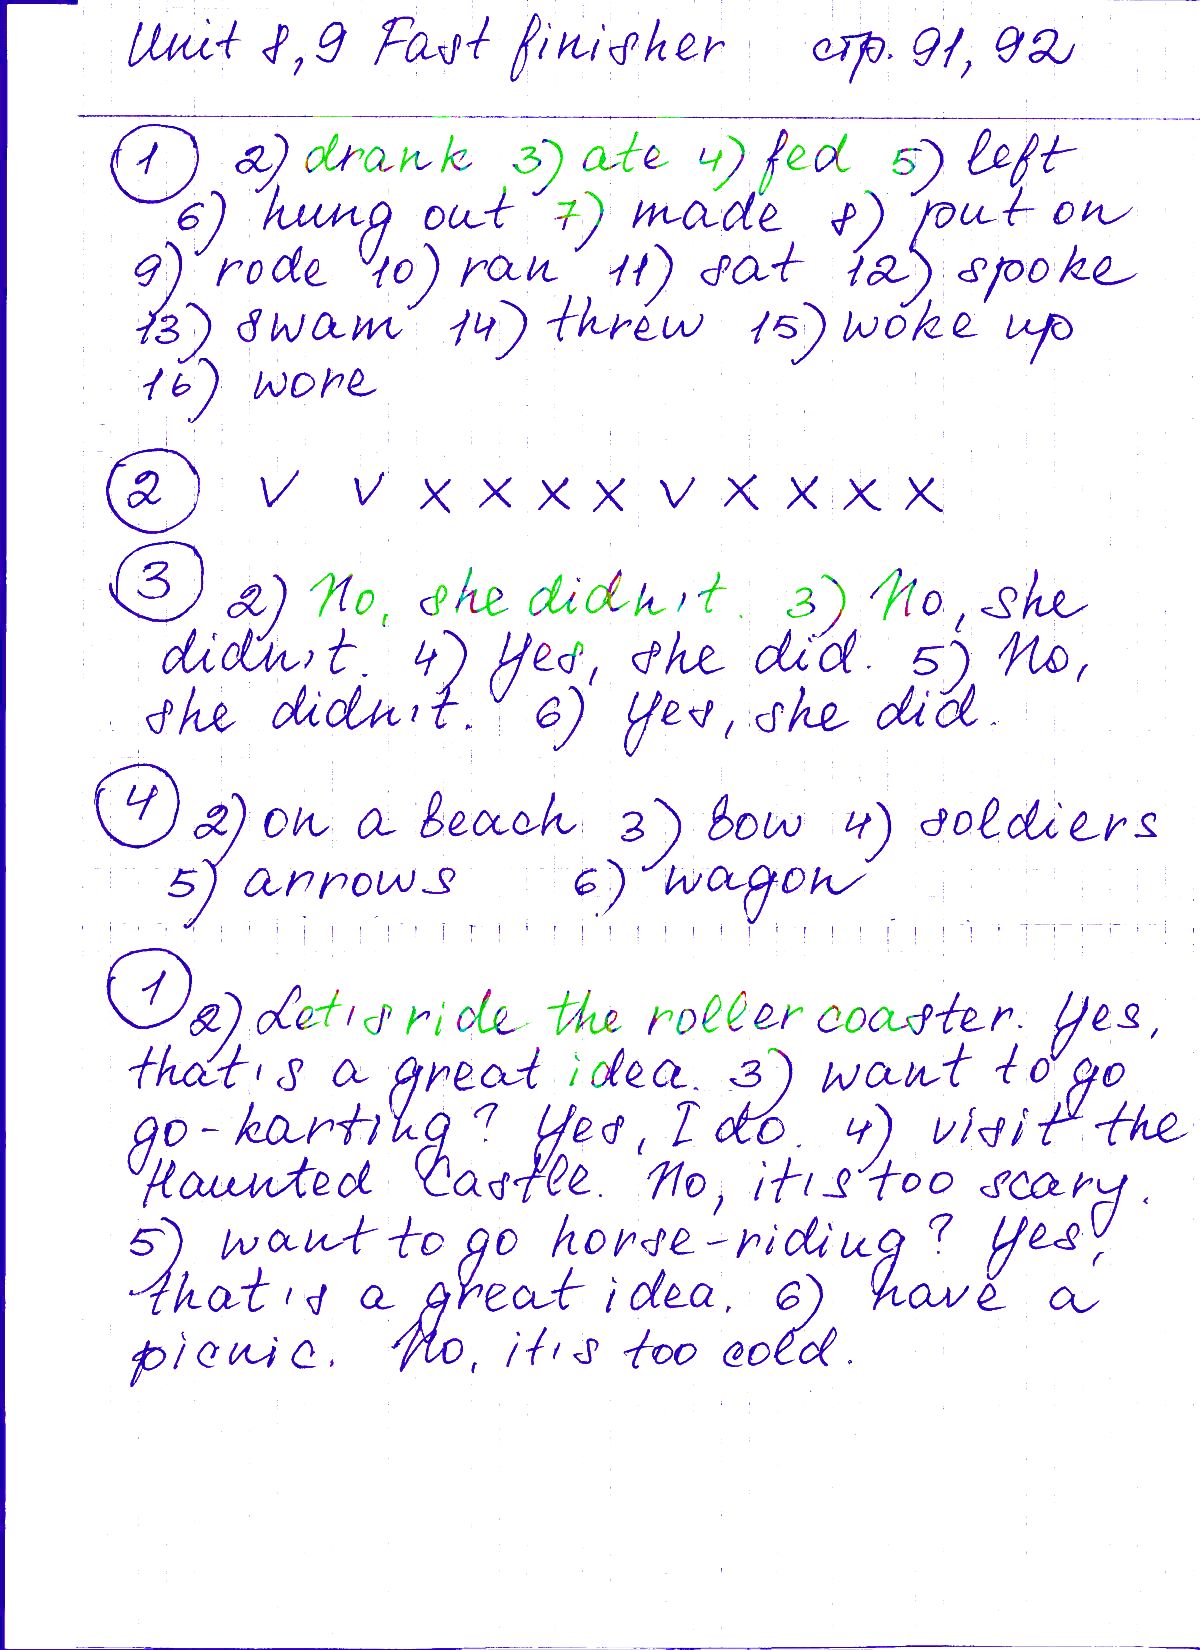 Unit 8,9 Fast finisher стр. 91, 92
1 2) drank 3) ate 4) fed 5) left
6) hung out 7) made 8) put on
9) rode 10) ran 11) sat 12) spoke
13) swam 14) threw 15) woke up
16) wore
2 V V X X X X V X X X X
3 2) No, she didn't. 3) No, she
didn't. 4) Yes, she did. 5) No,
she didn't. 6) Yes, she did.
4 2) on a beach 3) bow 4) soldiers
5) arrows 6) wagon
1 2) Let's ride the roller coaster. Yes,
that's a great idea. 3) want to go
go-karting? Yes, I do. 4) visit the
Haunted Castle. No, it's too scary.
5) want to go horse-riding? Yes,
that's a great idea. 6) have a
picnic. No, it's too cold.